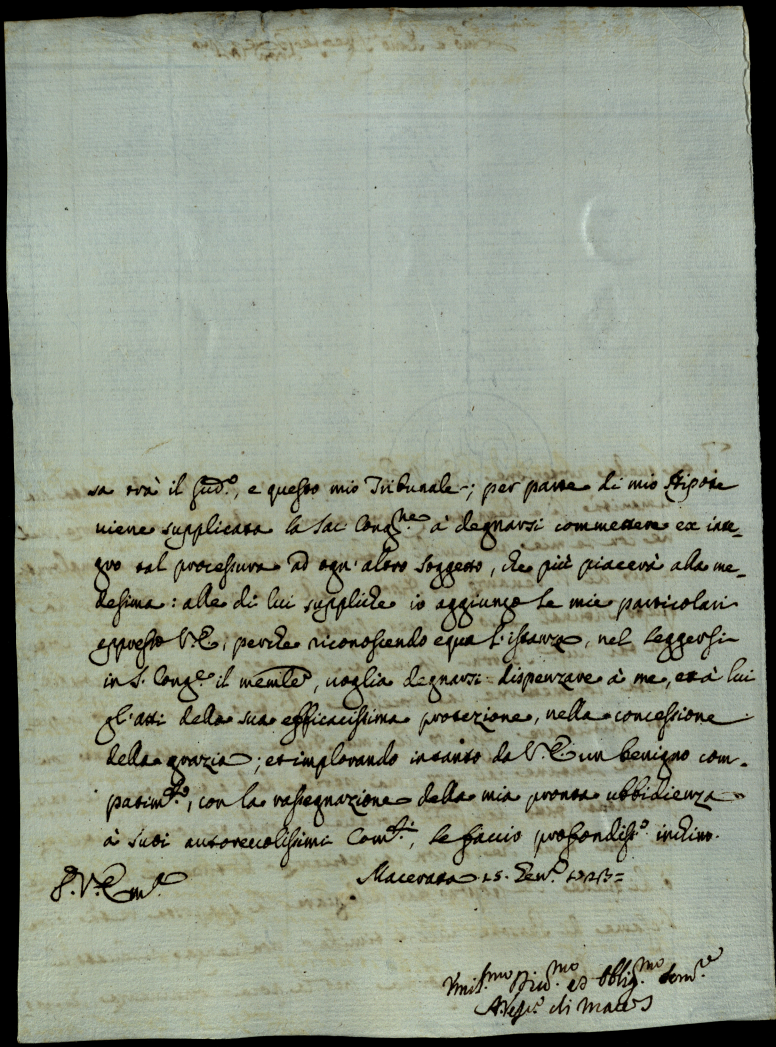 sa trà il sud.º, e questo mio Tribunale; per parte di mio Nipote
viene supplicata la Sac: Cong.ne à degnarsi commettere ex inte-
gro tal processura ad ogn'altro soggetto, che più piacerà alla me-
desima: alle di lui suppliche io aggiungo le mie particolari
appresso V.E., perche riconoscendo equa l'istanza, nel leggersi
in S. Cong.e il memle, voglia degnarsi dispenzare à me, et à lui
gl'atti della sua efficacissima protezione, nella concessione
della grazia; et implorando intanto da V.E. un benigno com-
patim.to, con la rassegnazione della mia pronta ubbidienza
à suoi autorevolissimi Com.ti, le faccio profondiss.º inchino.
Macerata 15. Gen.º
Umil.mo Div.mo ed Oblig.mo Serv.re
di Mac